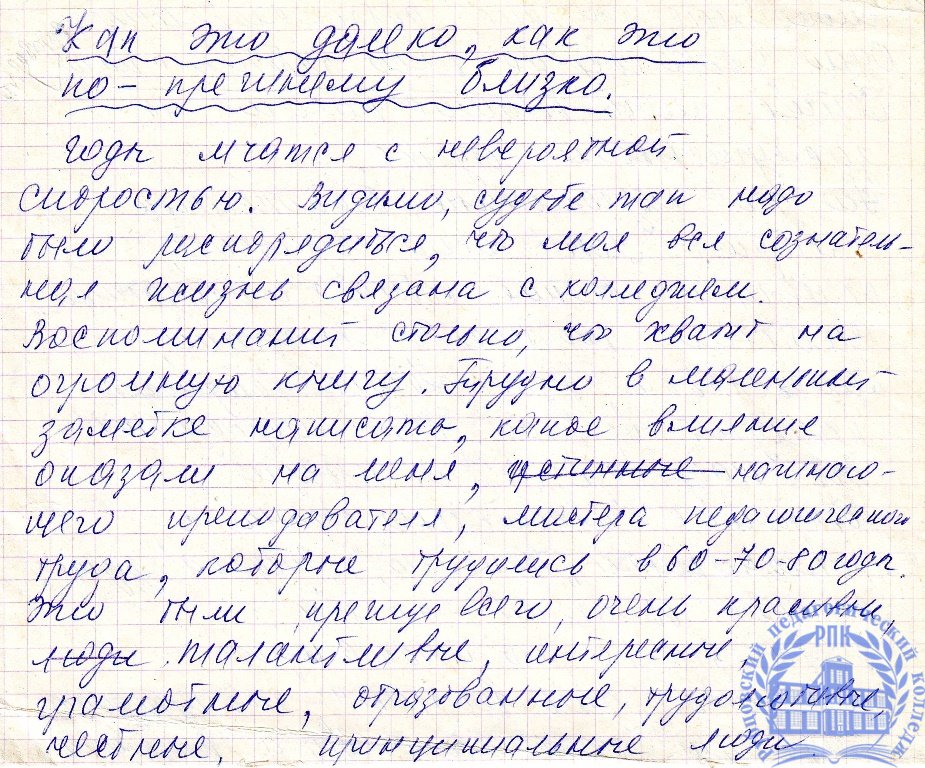 Как это далеко, как это
по-прежнему близко.
Годы мчатся с невероятной
скоростью. Видимо, судьбе так надо
было распорядиться, что моя вся сознатель-
ная жизнь связана с колледжем.
Воспоминаний столько, что хватит на
огромную книгу. Трудно в маленькой
заметке написать, какое влияние
оказали на меня, истинные начинаю-
щего преподавателя, мастера педагогического
труда, которые трудились в 60-70-80 годы.
Это были, прежде всего, очень красивые,
люди талантливые, интересные,
грамотные, образованные, трудолюбивые,
честные, принципиальные люди.
педагогический колледж
РПК